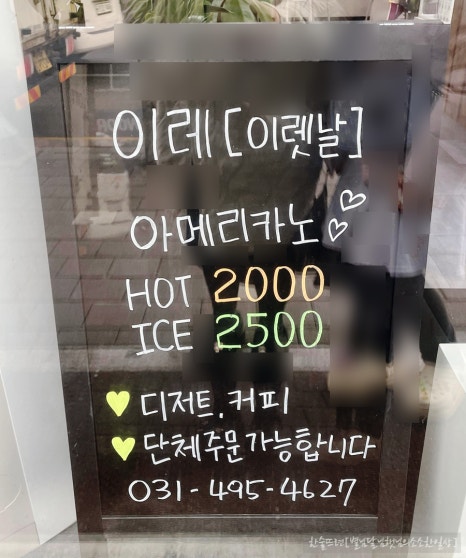 이레 [이렛날]
아메리카노
HOT 2000
ICE 2500
디저트, 커피
단체주문가능합니다
031-495-4627